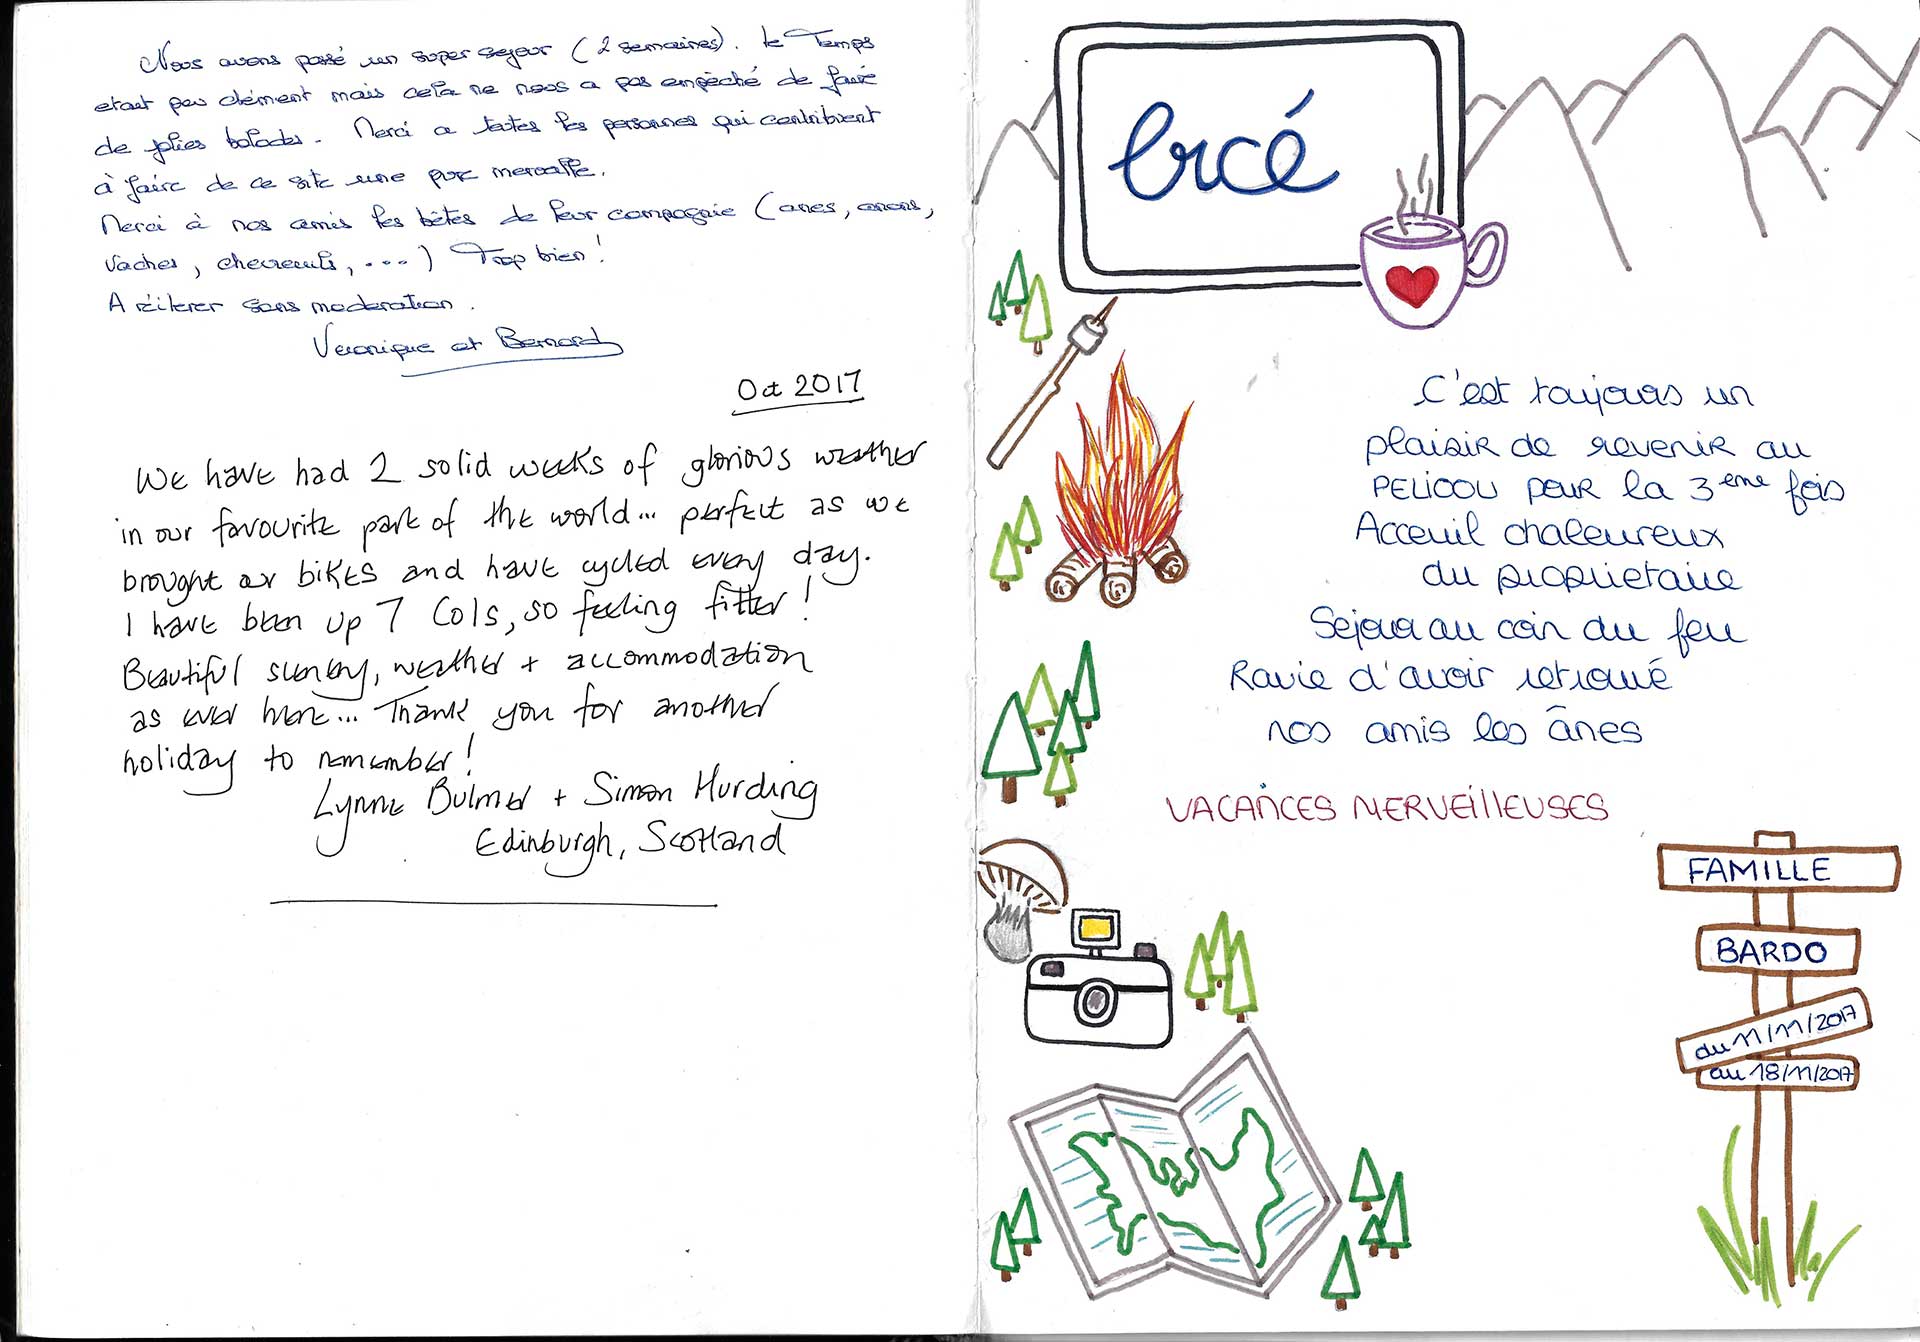 Nous avons passé un super sejour (2 semaines). le Temps
etait peu clément mais cela ne nous a pas empêché de faire
de jolies balades. Merci a toutes les personnes qui contribuent
à faire de ce site une pure merveille.
Merci à nos amis les bêtes de leur compagnie (anes, anons,
vaches, chevreuils, ...) Trop bien !
A réiterer sans moderation.
Veronique et Bernard
Oct 2017
We have had 2 solid weeks of glorious weather
in our favourite part of the world... perfect as we
brought our bikes and have cycled every day.
I have been up 7 Cols, so feeling fitter!
Beautiful scenery, weather + accommodation
as ever here... Thank you for another
holiday to remember!
Lynne Bulmer + Simon Hurding
Edinburgh, Scotland
Ercé
C'est toujours un
plaisir de revenir au
PELICOU pour la 3eme fois
Acceuil chaleureux
du proprietaire
Sejour au coin du feu
Ravie d'avoir retrouvé
nos amis les ânes
VACANCES MERVEILLEUSES
FAMILLE
BARDO
du 11/11/2017
au 18/11/2017